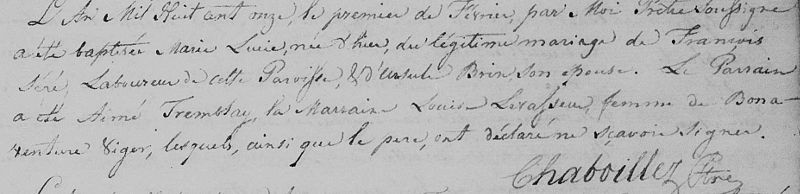 L'An Mil Huit cent onze, le premier de Fevrier, par Moi Prêtre Soussigné
a été baptisée Marie Lucie, née d'hier, du légitime mariage de François
Séré, Laboureur de cette Paroisse, & d'Ursule Brin son épouse. Le Parrain
a été Aimé Tremblay, la Marraine Louise Levasseur, femme de Bona-
venture Viger, lesquels, ainsi que le pere, ont déclaré ne sçavoir signer.
Chaboillez Ptre